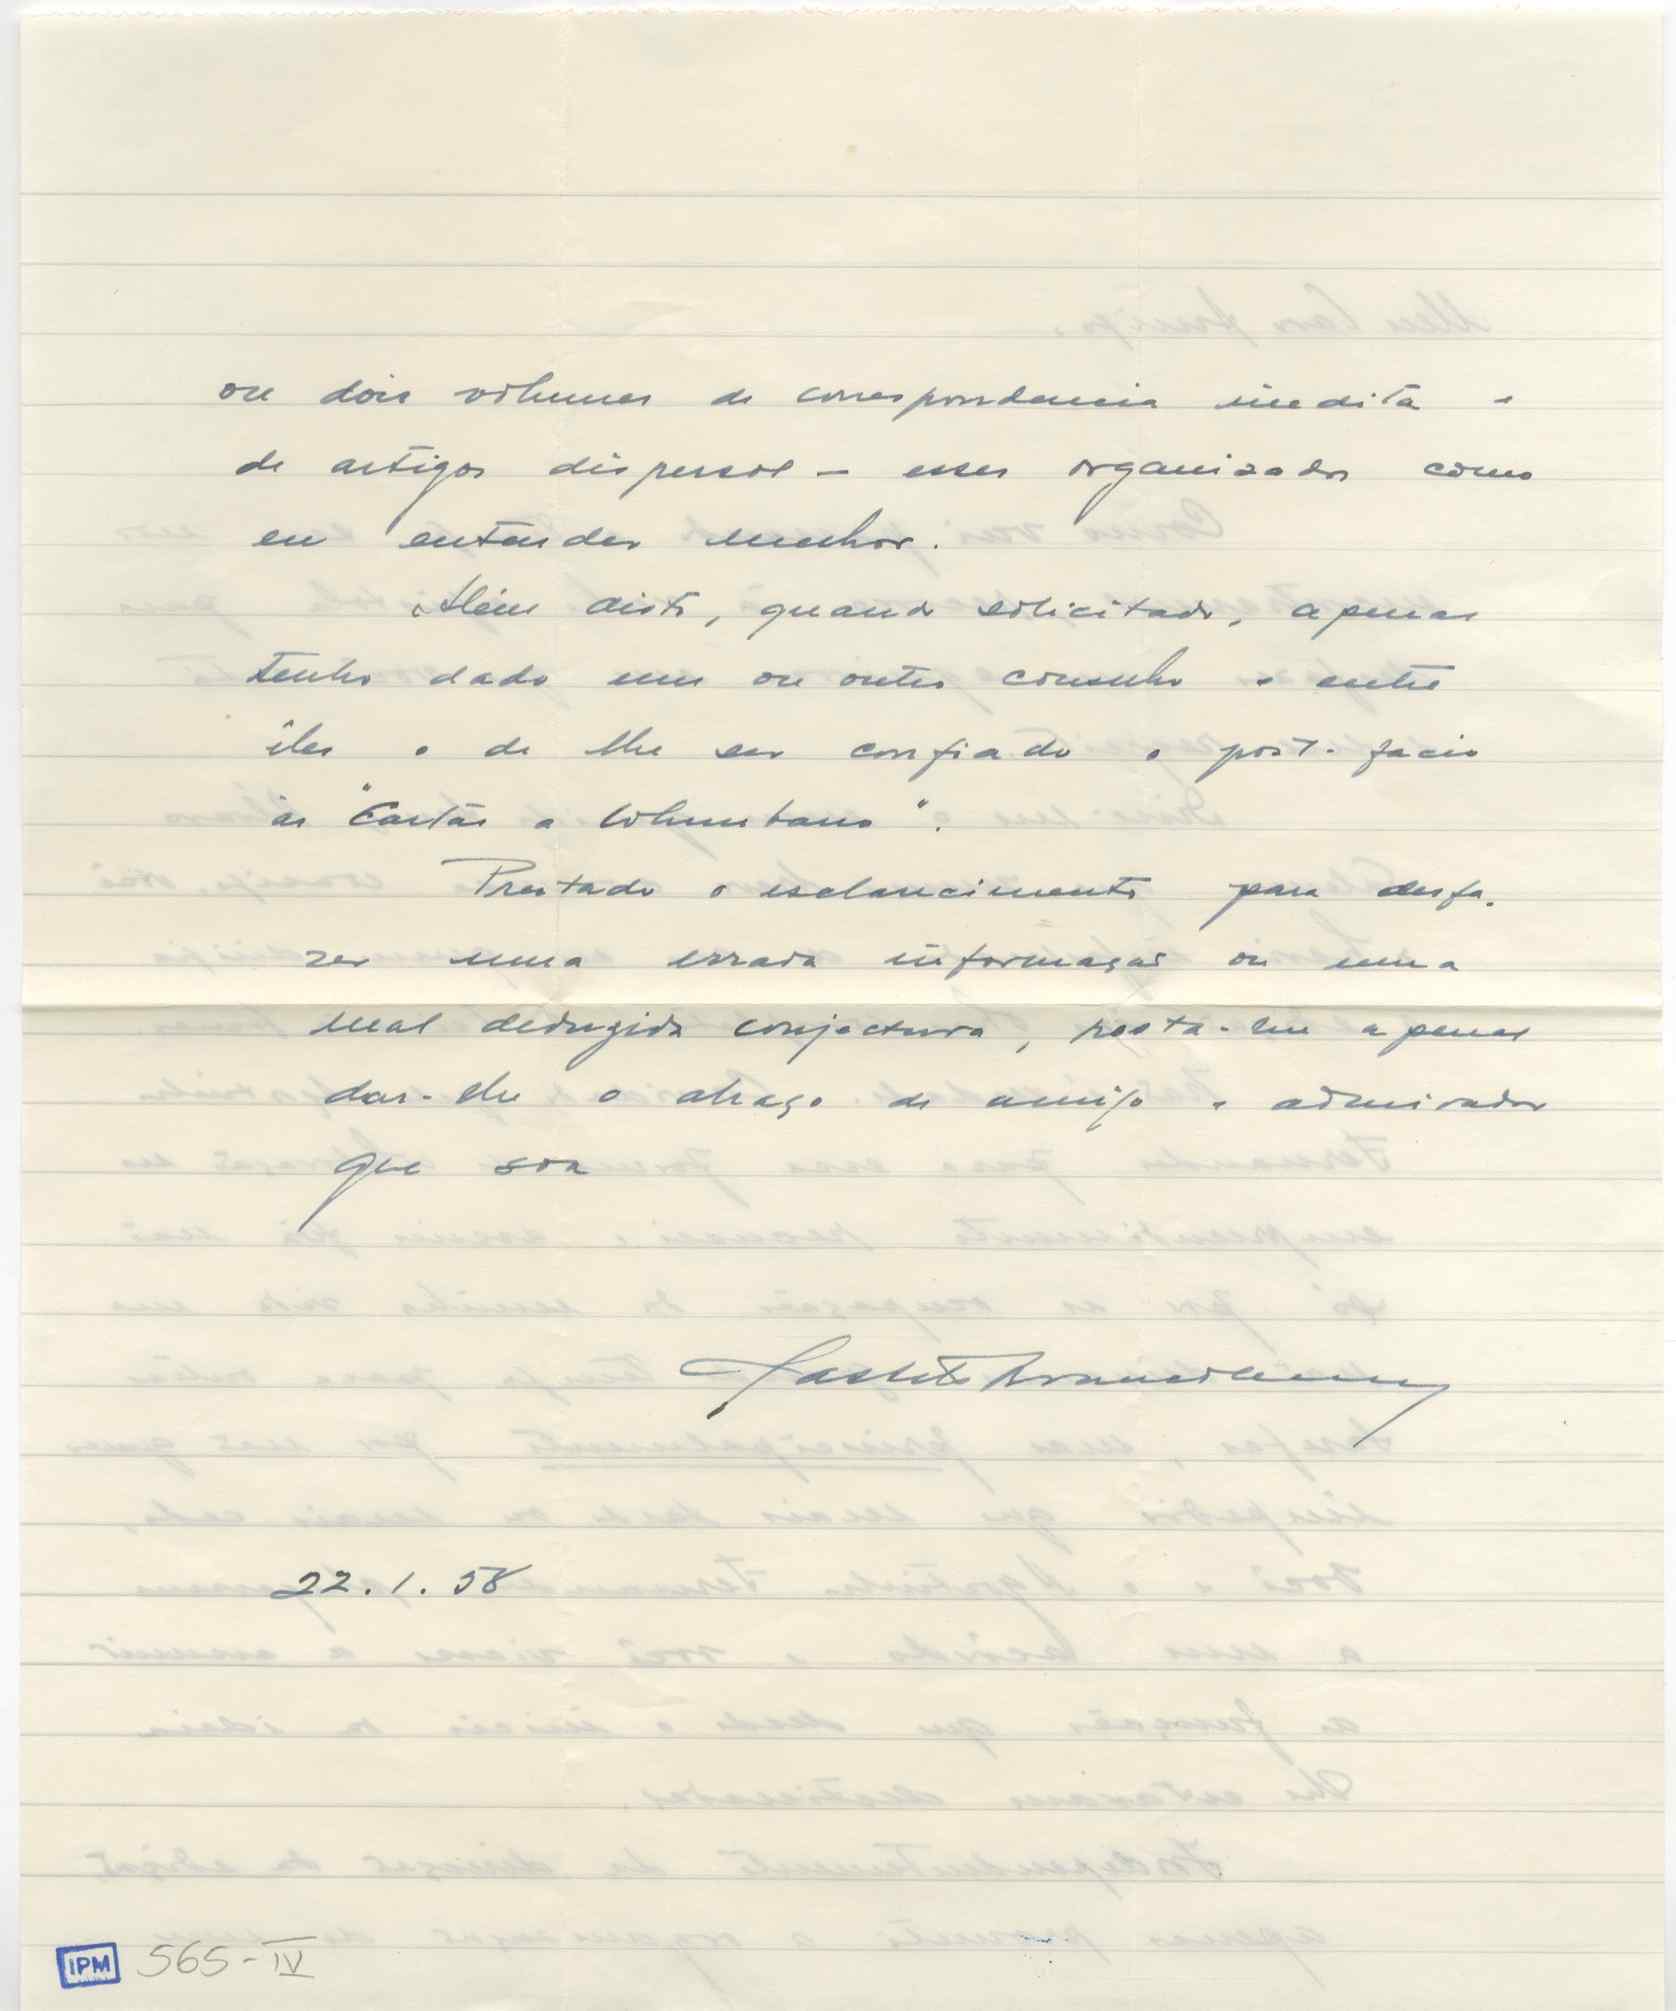 ou dois volumes de correspondencia inedita e
de artigos dispersos – esses organizados como
eu entender melhor.
Além disto, quando solicitado, apenas
tenho dado um ou outro conselho e entre
êles o de lhe ser confiado o post-facio
às "Cartas a Columbano".
Prestado o esclarecimento para desfa-
zer uma errada informação ou uma
mal deduzida conjectura, resta-me apenas
dar-lhe o abraço de amigo e admirador
que sou
22.1.58
IPM 565-IV